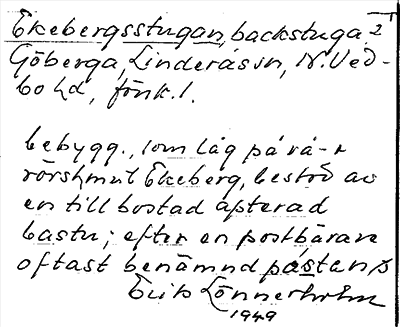 Ekebergsstugan, backstuga 2
Göberga, Linderås sn, N. Ved-
bo hd, Jönk. l.
bebygg., som låg på rå-
rörsh mot Ekeberg, bestod av
en till bostad apterad
bastu; efter en postbärare
oftast benämnd påstans
Erik Lönnerholm
1949